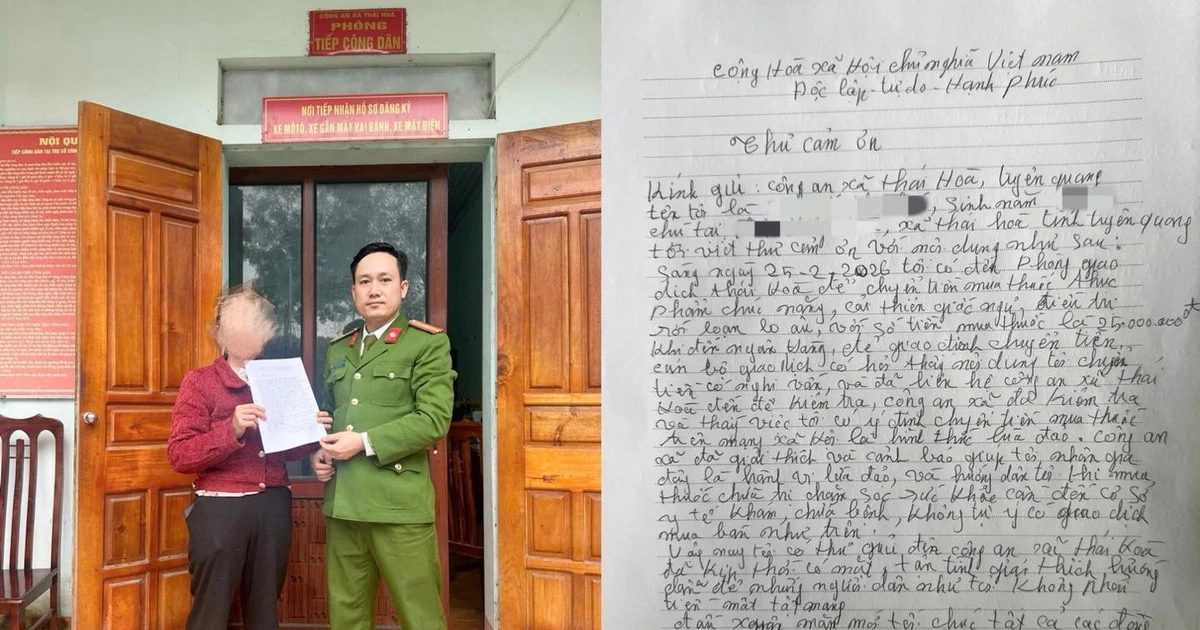 CÔNG AN XÃ THÁI HOÀ
PHÒNG
TIẾP CÔNG DÂN
NƠI TIẾP NHẬN HỒ SƠ ĐĂNG KÝ
XE MÔTÔ, XE GẮN MÁY HAI BÁNH, XE MÁY ĐIỆN
NỘI QU
Cộng Hoà xã Hội chủ nghĩa Việt nam
Độc lập - tự do - Hạnh Phúc
Thư cảm ơn
Kính gửi : công an xã thái Hoà, tuyên quang
tên tôi là , Sinh năm
chú tại : , xã thái hoà tỉnh tuyên quang
tôi viết thư cảm ơn với nội dung như sau :
Sáng ngày 25-2, 2026 tôi có đến Phòng giao
dịch thái Hoà để chuyển tiền mua thuốc thực
phẩm chức năng, cải thiện giấc ngủ, điều trị
rối loạn lo âu, với số tiền mua thuốc là 25.000.000 đ
Khi đến ngân hàng, để giao dịch chuyển tiền,
cán bộ giao dịch có hỏi thấy nội dung tôi chuyển
tiền có nghi vấn, và đã liên hệ công an xã thái
Hoà đến để kiểm tra, công an xã đã kiểm tra
và thấy việc tôi có ý định chuyển tiền mua thuốc
trên mạng xã hội là hình thức lừa đảo. công an
xã đã giải thích và cảnh báo giúp tôi nhận
đây là hành vi lừa đảo, và hướng dẫn tôi thi mua,
thuốc chữa trị chăm sóc sức khoẻ cần đến cơ sở
y tế khám chữa bệnh, không tự ý có giao dịch
mua bán như trên.
Vậy nay tôi có thư gửi đến công an xã thái Hoà
đã kịp thời có mặt, tận tình giải thích hướng
dẫn để những người dân như tôi không phải
tiền mất tật mang
đầu xuân năm mới tôi chúc tất cả các đồng